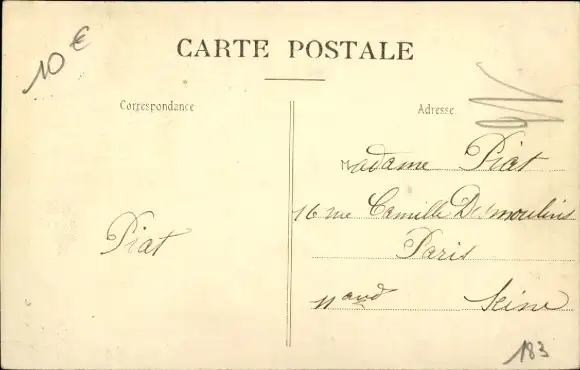 10 €
CARTE POSTALE
Correspondance
Adresse
Madame Piat
16 rue Camille Desmoulins
Paris
Piat
11 arrd Seine
183